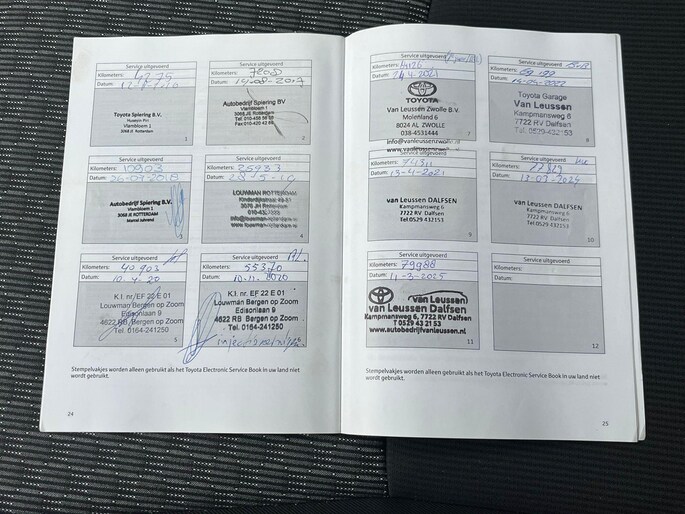 Service uitgevoerd
Kilometers: 4279
Datum:
Toyota Spiering B.V.
Vlambloem 1
3068 JE Rotterdam
1
Service uitgevoerd
Kilometers: 7808
Datum: 14-08-2017
Autobedrijf Spiering BV
Vlambloem 1
3068 JE Rotterdam
2
Service uitgevoerd
Kilometers: 10903
Datum: 26-07-2018
Autobedrijf Spiering B.V.
Vlambloem 1
3068 JE ROTTERDAM
3
Service uitgevoerd
Kilometers: 25933
Datum:
LOUWMAN ROTTERDAM
3078 JH Rotterdam
4
Service uitgevoerd
Kilometers: 40903
Datum: 10.4.20
K.I. nr. EF 22 E 01
Louwman Bergen op Zoom
Edisonlaan 9
4622 RB Bergen op Zoom
Tel. 0164-241250
5
Service uitgevoerd
Kilometers: 55370
Datum: 10-11-2020
K.I. nr. EF 22 E 01
Louwman Bergen op Zoom
Edisonlaan 9
4622 RB Bergen op Zoom
Tel. 0164-241250
Stempelvakjes worden alleen gebruikt als het Toyota Electronic Service Book in uw land niet
wordt gebruikt.
24
Service uitgevoerd
Kilometers:
Datum:
TOYOTA
Van Leussen Zwolle B.V.
Molenland 6
8024 AL ZWOLLE
038-4531444
info@vanleussenzwolle.nl
www.vanleussenzwolle.nl
7
Service uitgevoerd
Kilometers:
Datum:
Toyota Garage
Van Leussen
Kampmansweg 6
7722 RV Dalfsen
Tel. 0529-432153
8
Service uitgevoerd
Kilometers: 74311
Datum: 13-4-2021
van LEUSSEN DALFSEN
Kampmansweg 6
7722 RV Dalfsen
Tel.0529 432153
Service uitgevoerd
Kilometers:
Datum: 13-03-2024
van LEUSSEN DALFSEN
Kampmansweg 6
7722 RV Dalfsen
Tel.0529 432153
10
Service uitgevoerd
Kilometers: 79988
Datum: 11-3-2025
van Leussen
van Leussen Dalfsen
Kampmansweg 6, 7722 RV Dalfsen
T 0529 43 21 53
www.autobedrijfvanleussen.nl
11
Service uitgevoerd
Kilometers:
Datum:
12
Stempelvakjes worden alleen gebruikt als het Toyota Electronic Service Book in uw land niet
wordt gebruikt.
25